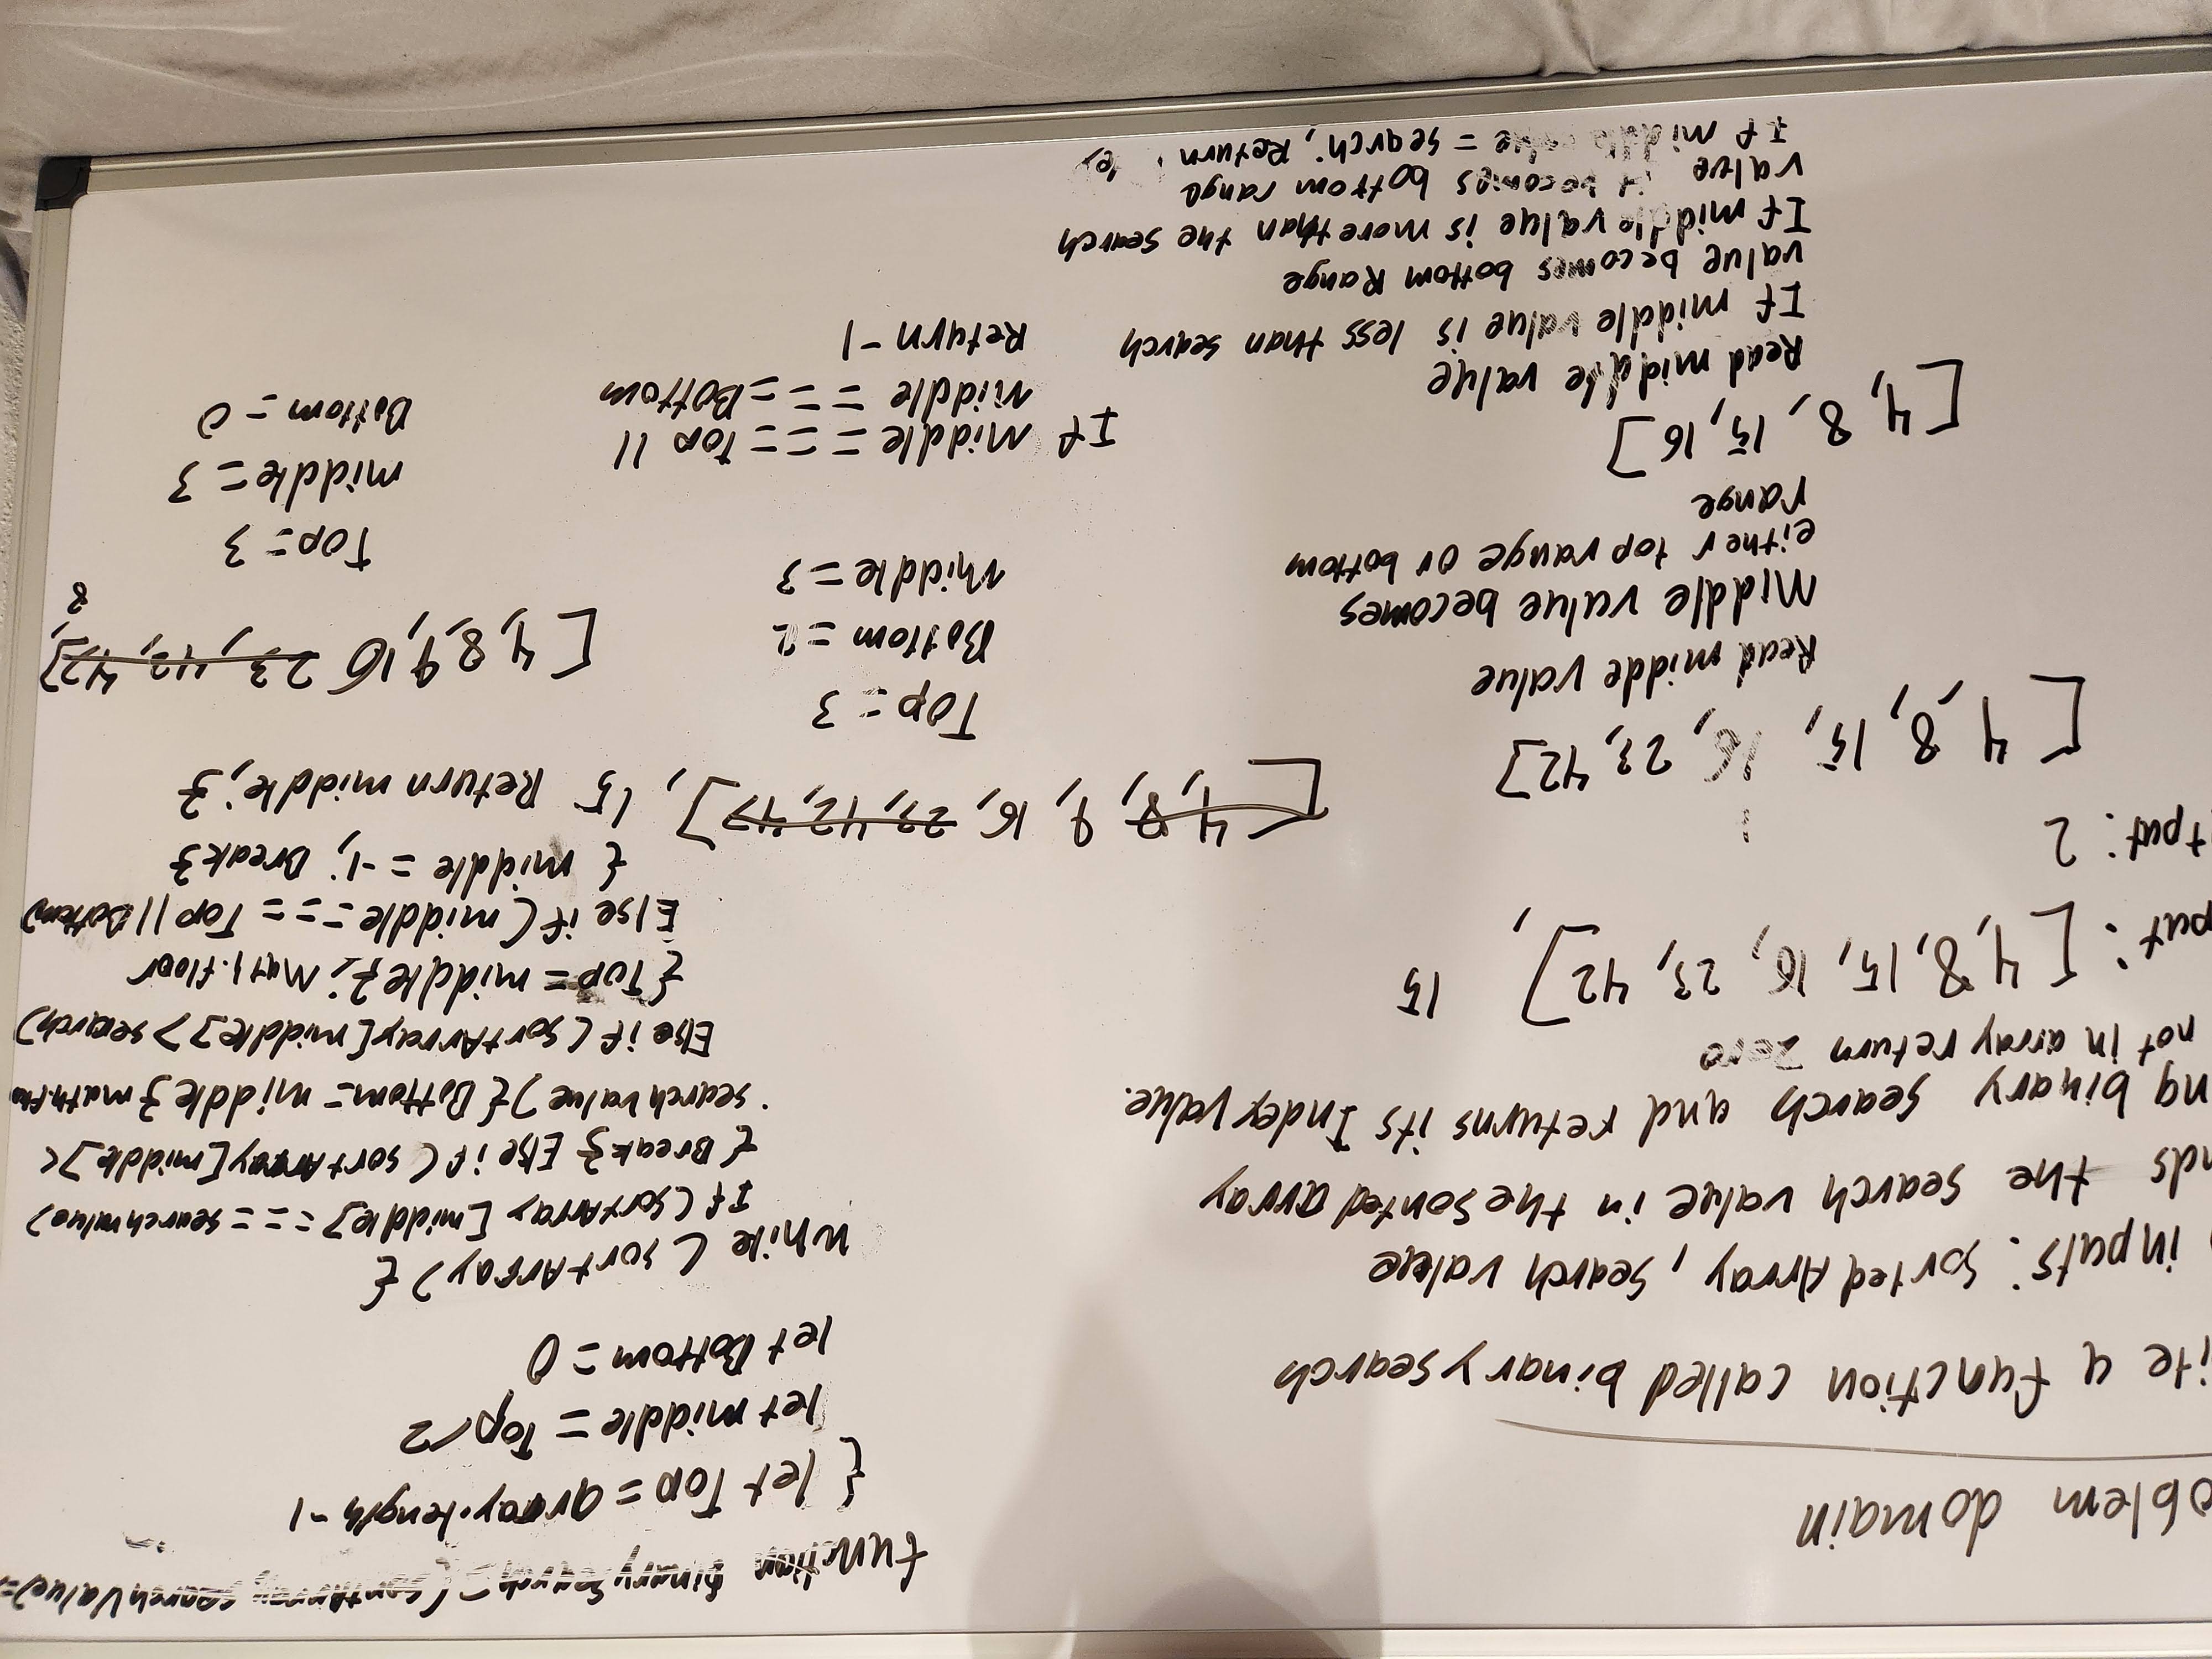 oblem domain
ite a function called binarysearch
inputs: Sorted Array, Search value
nds the search value in the sonted array
ng binary search and returns its Index value.
not in array return Zero
put: [4,8,15, 16, 23, 42], 15
tput: 2
[4,8,15, 16, 23,42]
Read midde value
Middle value becomes
either top range or bottom
range
[4, 8, 15, 16]
Read middle value
If middle value is less than search
value becomes bottom Range
If middle value is more than the search
value it becomes bottom range
If middle value = search; Return
function binarySearch = (sortArray, searchValue)=
{ let Top = array.length -1
let middle = Top/2
let Bottom = 0
While (sortArray) {
If (sortArray [middle] === searchvalue)
{ Break} Else if ( sortArray[middle] <
searchvalue ){ Bottom= middle } math.flo
Else if (sortArray[middle] > search)
{Top= middle}; Math.floor
Else if ( middle === Top || Bottom)
{ middle = -1; Break}
Return middle; }
[4, 8, 9, 16, 23, 42, 47], 15
Top = 3
Bottom = 2
Middle = 3
If Middle === Top ||
Middle === Bottom
Return -1
[4, 8, 9, 16 23, 42, 47],
8
Top= 3
middle= 3
Bottom = 0